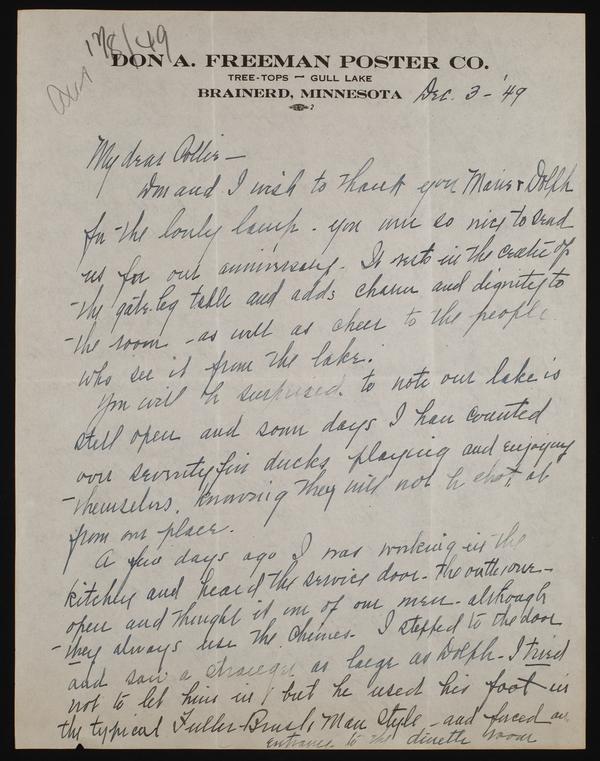 Ans 12/8/49
DON A. FREEMAN POSTER CO.
TREE-TOPS — GULL LAKE
BRAINERD, MINNESOTA Dec. 3 - '49
My dear Collie —
Don and I wish to thank you Marie & Dolph
for the lovely lamp - you were so nice to send
us for our anniversary. It rests in the center of
the gate-leg table and adds charm and dignity to
the room - as well as cheer to the people
who see it from the lake.
You will be surprised to note our lake is
still open and some days I have counted
over seventy five ducks playing and enjoying
themselves, knowing they will not be shot at
from our place.
A few days ago I was working in the
kitchen and heard the service door - the outside one -
open and thought it one of our men - although
they always use the chimes. I stepped to the door
and saw a stranger as large as Dolph - I tried
not to let him in, but he used his foot in
the typical Fuller-Brush Man style - and forced an
entrance to the dinette room